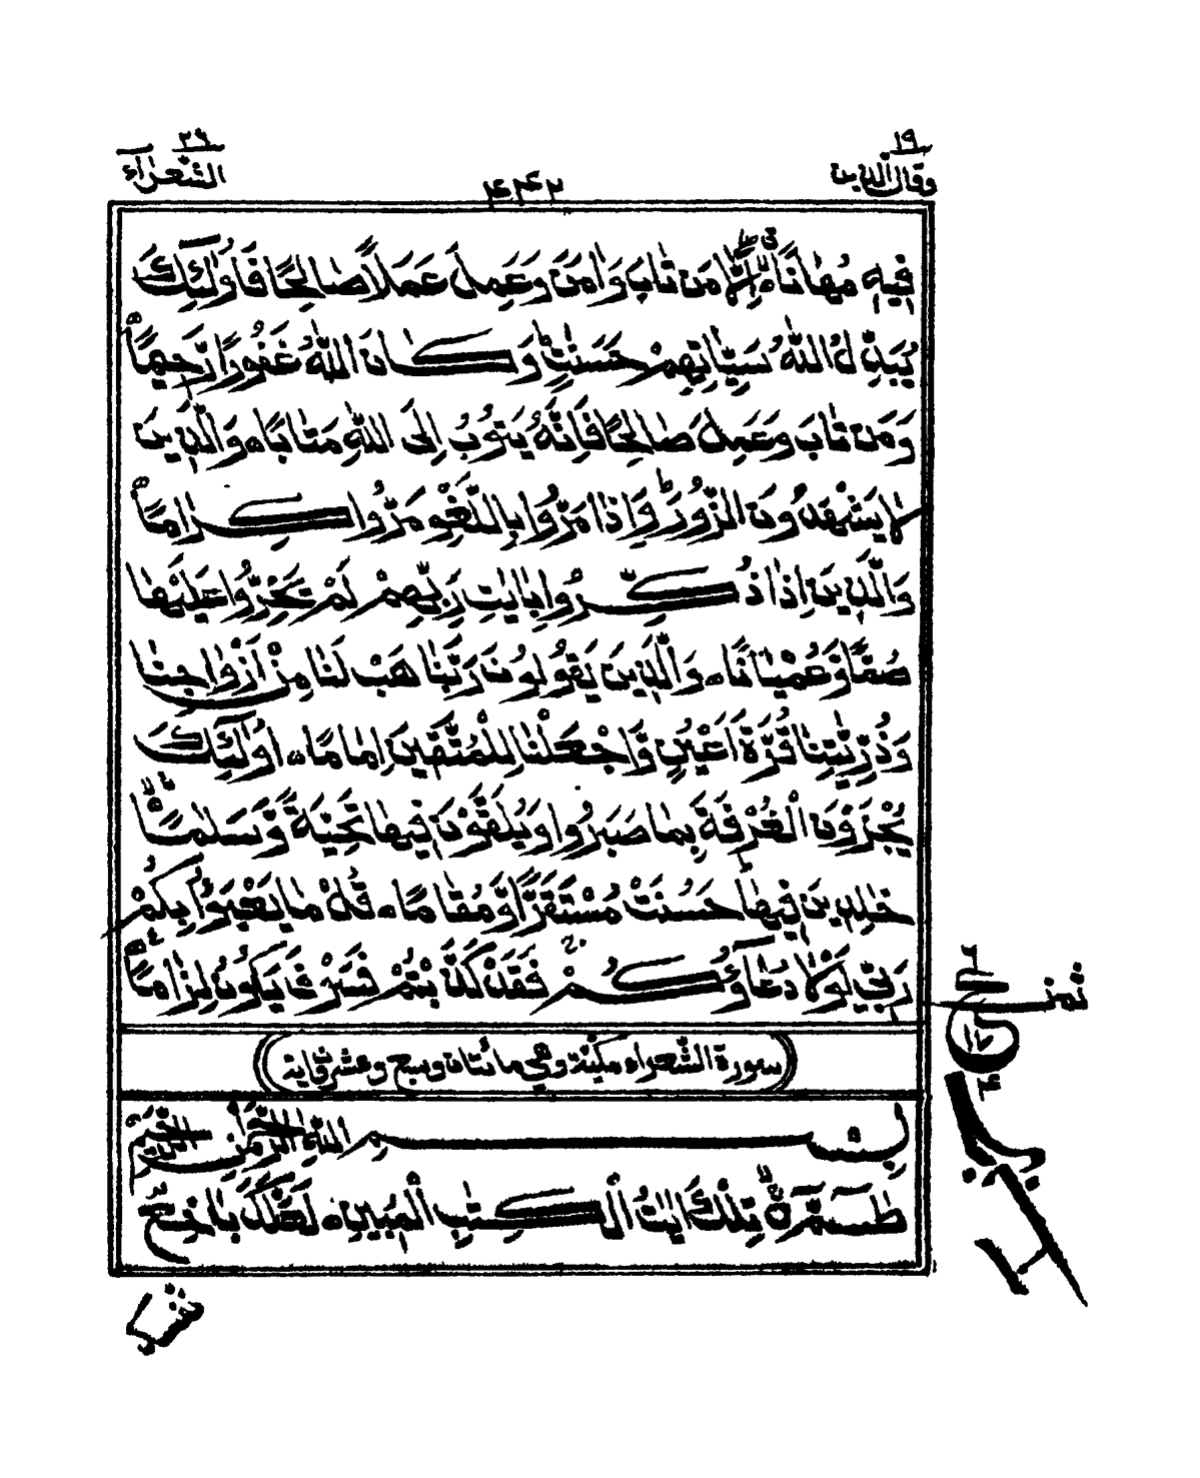 ١٩
وقال الذين
٤٤٢
٢٦
الشعراء
فِيهِ مُهَانًا إِلَّا مَن تَابَ وَاٰمَنَ وَعَمِلَ عَمَلًا صَالِحًا فَأُولٰئِكَ
يُبَدِّلُ اللّٰهُ سَيِّاٰتِهِمْ حَسَنٰتٍ وَكَانَ اللّٰهُ غَفُورًا رَّحِيمًا
وَمَن تَابَ وَعَمِلَ صَالِحًا فَإِنَّهُ يَتُوبُ إِلَى اللّٰهِ مَتَابًا وَالَّذِينَ
لَا يَشْهَدُونَ الزُّورَ وَإِذَا مَرُّوا بِاللَّغْوِ مَرُّوا كِرَامًا
وَالَّذِينَ إِذَا ذُكِّرُوا بِاٰيٰتِ رَبِّهِمْ لَمْ يَخِرُّوا عَلَيْهَا
صُمًّا وَّعُمْيَانًا وَالَّذِينَ يَقُولُونَ رَبَّنَا هَبْ لَنَا مِنْ أَزْوَاجِنَا
وَذُرِّيّٰتِنَا قُرَّةَ أَعْيُنٍ وَّاجْعَلْنَا لِلْمُتَّقِينَ إِمَامًا أُولٰئِكَ
يُجْزَوْنَ الْغُرْفَةَ بِمَا صَبَرُوا وَيُلَقَّوْنَ فِيهَا تَحِيَّةً وَّسَلٰمًا
خٰلِدِينَ فِيهَا حَسُنَتْ مُسْتَقَرًّا وَّمُقَامًا قُلْ مَا يَعْبَؤُا بِكُمْ
رَبِّي لَوْلَا دُعَاؤُكُمْ فَقَدْ كَذَّبْتُمْ فَسَوْفَ يَكُونُ لِزَامًا
ثمن
سورة الشعراء مكية وهي مائتان وسبع وعشرون اية
بِسْمِ اللّٰهِ الرَّحْمٰنِ الرَّحِيمِ
طٰسٓمّٓ تِلْكَ اٰيٰتُ الْكِتٰبِ الْمُبِينِ لَعَلَّكَ بَاخِعٌ
نفسك